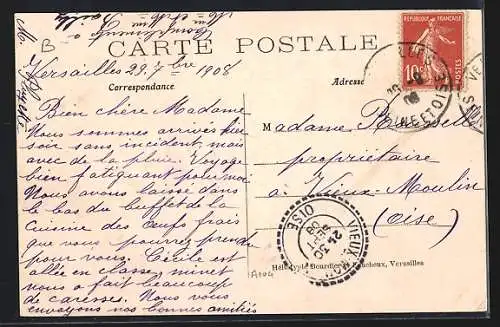 B
CARTE POSTALE
Versailles 29.7bre 1908
Correspondance
Adresse
Bien chère Madame
Nous sommes arrivés hier
soir sans incident, mais
avec de la pluie. Voyage
bien fatiguant pour moi
Nous avons laissé dans
le bas du buffet de la
cuisine des œufs frais
que vous pourrez prendre
pour vous. Cécile est
allée en classe, minet
nous a fait beaucoup
de caresses. Nous vous
envoyons nos bonnes amitiés
RÉPUBLIQUE FRANÇAISE
10
POSTES
SEINE ET OISE
Madame
propriétaire
à Vieux-Moulin
(Oise)
VIEUX-MOULIN
OISE
30
SEPT
08
Versailles
A104